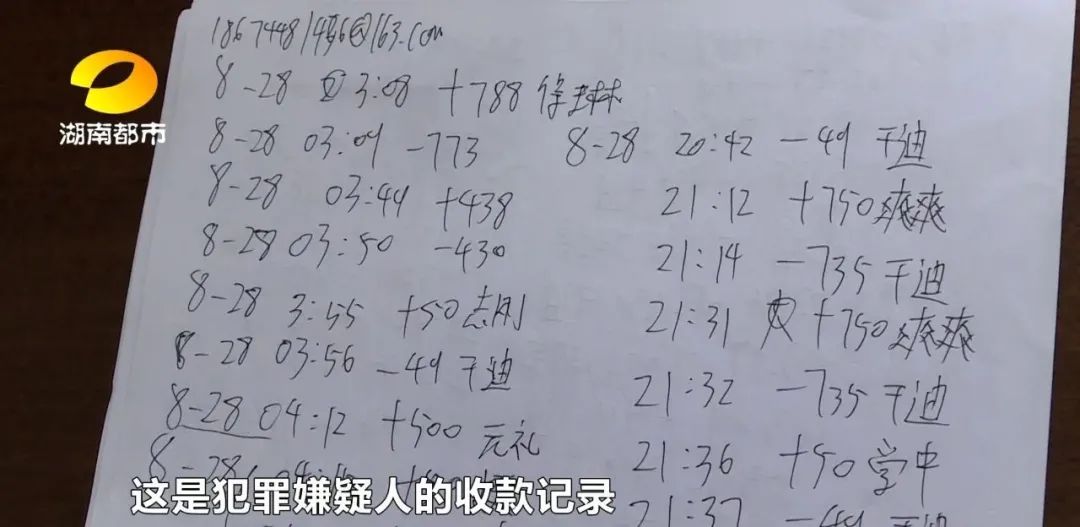 18674481456@163.com
8-28 03:08 +788 徐琳琳
8-28 03:09 -773
8-28 03:44 +438
8-28 03:50 -430
8-28 3:55 +50 志刚
8-28 03:56 -49 干迪
8-28 04:12 +500 元礼
8-28
8-28 20:42 -49 干迪
21:12 +750 爽爽
21:14 -735 干迪
21:31 +750 爽爽
21:32 -735 干迪
21:36 +50 学中
21:37 -49 干迪
湖南都市
这是犯罪嫌疑人的收款记录